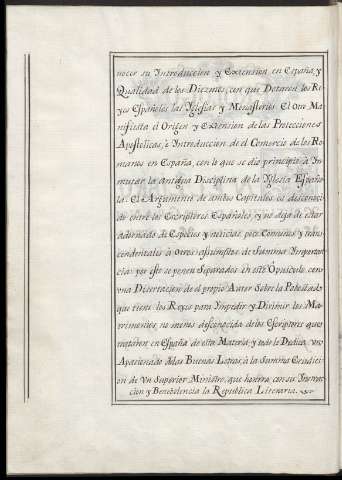 nocer su Introduccion y Extension en España, y
Qualidad de los Diezmos, con que Dotaron los Re-
yes Españoles las Yglesias y Monasterios. El otro Ma-
nifiesta el Origen y Extension de las Protecciones
Apostolicas, è Introduccion de el Comercio de los Ro-
manos en España, con lo que se dio principio à In-
mutar la Antigua Disciplina de la Yglesia Españo-
la. El Argumento de ambos Capitulos es desconoci-
do entre los Escriptores Españoles, y no deja de estar
adornado de Especies y noticias poco Comunes y trans-
cendentales à Otros assumptos de Summa Importan-
cia; por esto se ponen Separados en este Opusculo con
una Disertacion de el propio Autor Sobre la Potestad
que tienen los Reyes para Impedir y Dirimir los Ma-
trimonios, no menos desconocida de los Escriptores que
trataron en España de esta Materia, y todo lo Dedica, un
Apasionado à las Buenas Letras, à la Summa Erudici-
on de Un Superior Ministro, que honrra con su Instruc-
cion y Benevolencia la Republica Literaria.